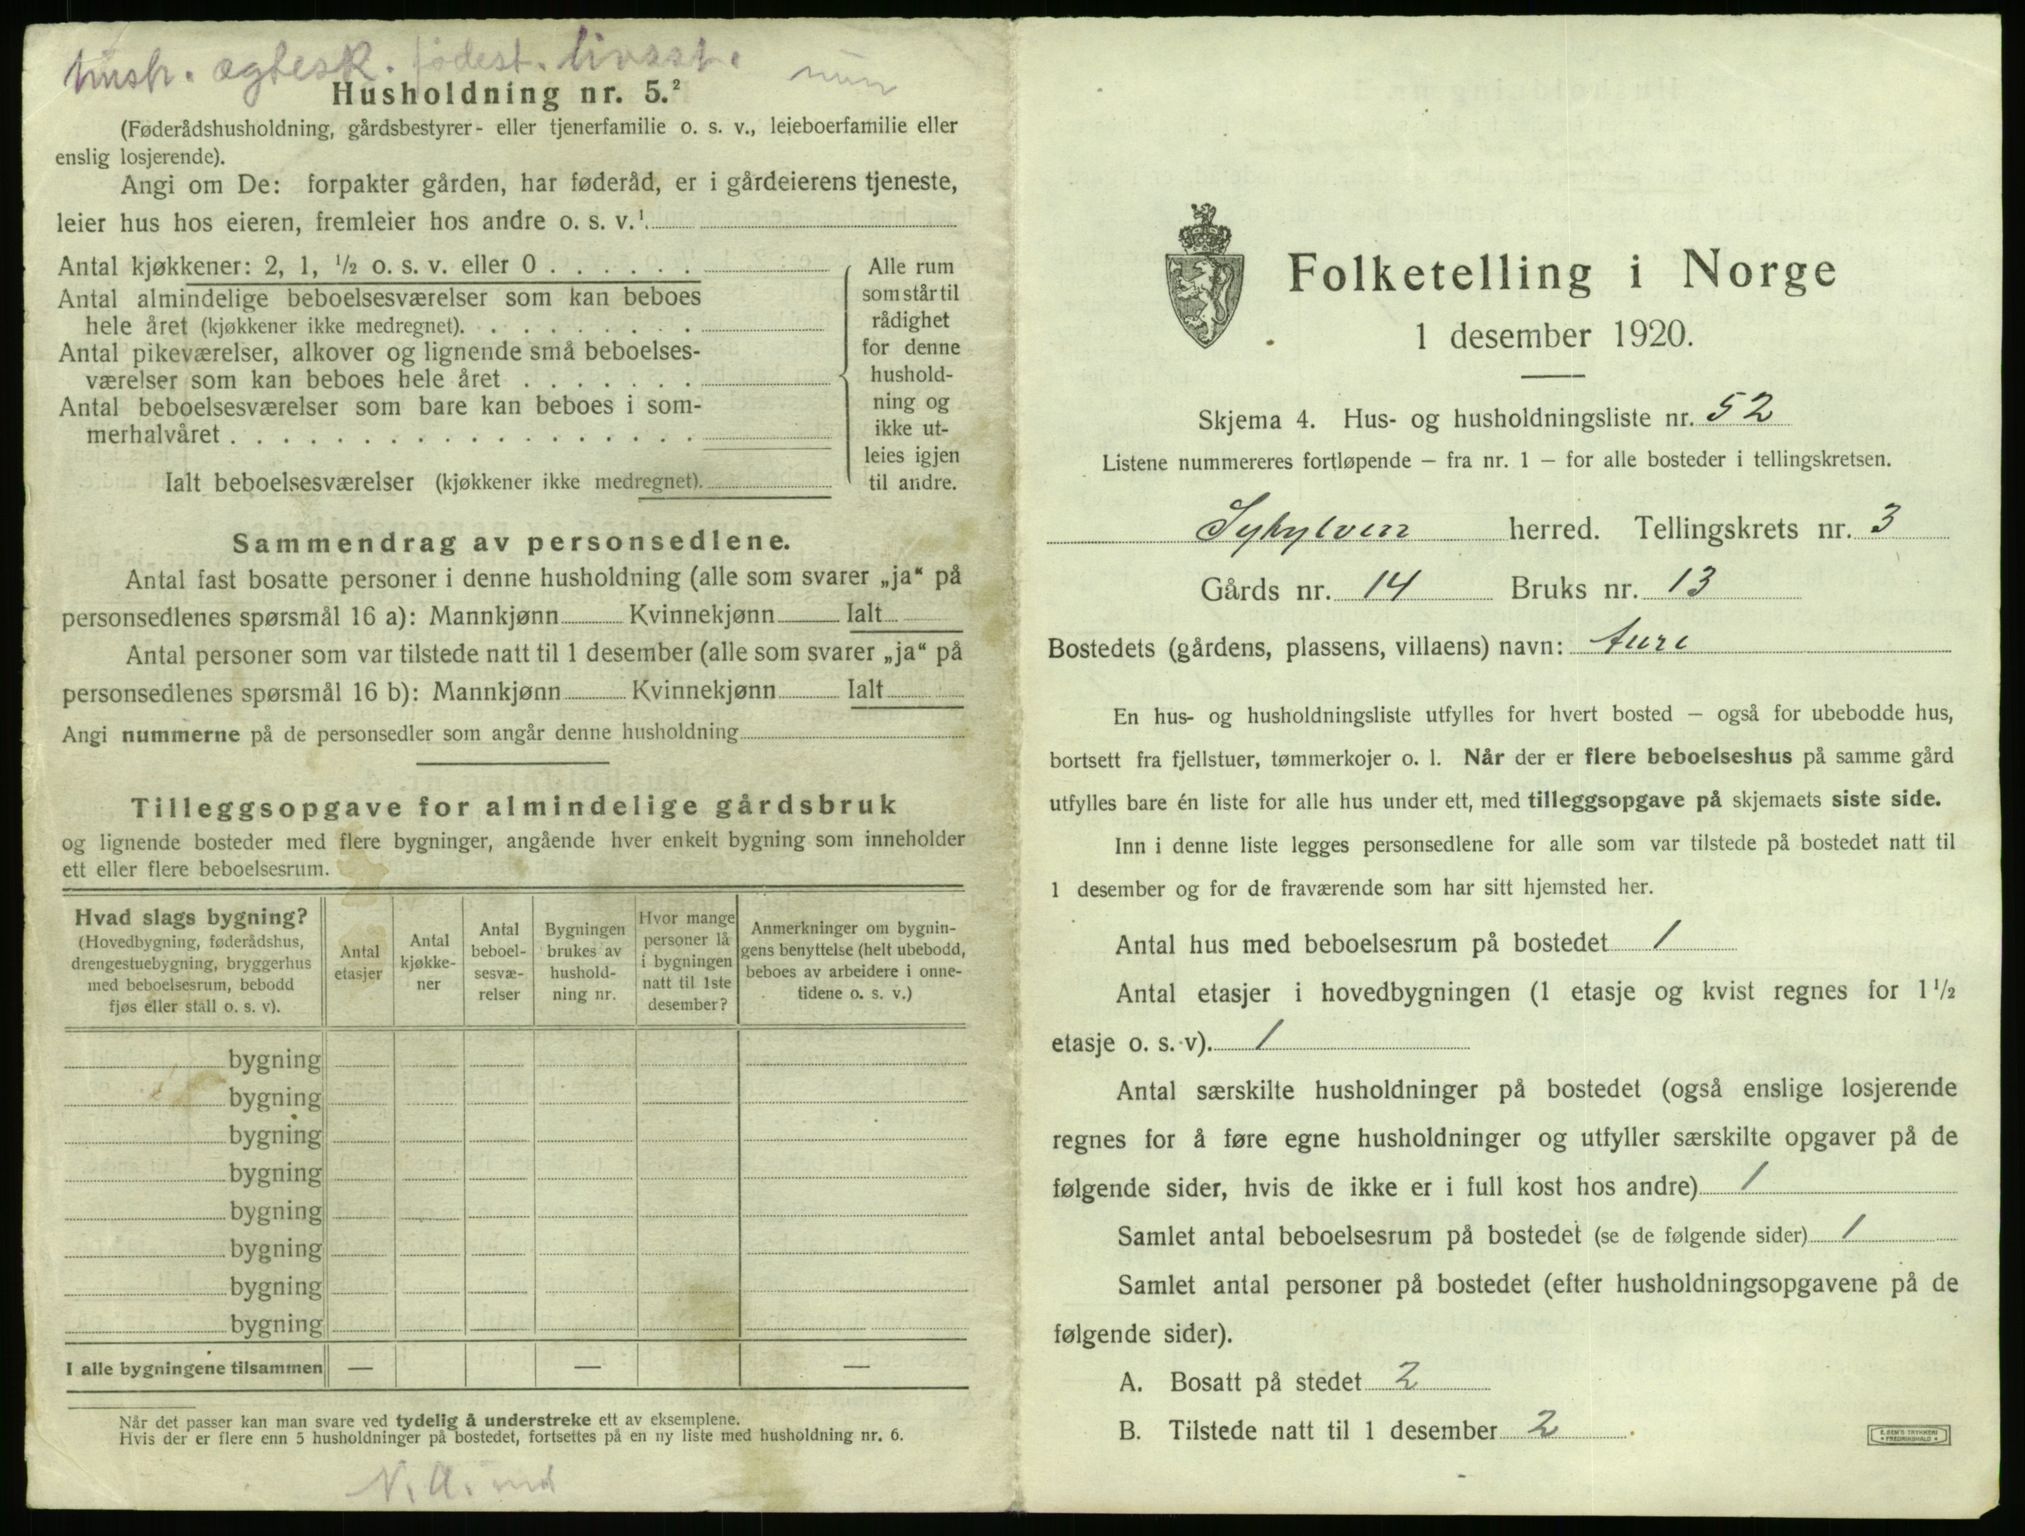 hush. ægtesk. fødest. livsst.
Husholdning nr. 5.²
(Føderådshusholdning, gårdsbestyrer- eller tjenerfamilie o. s. v., leieboerfamilie eller
enslig losjerende).
Angi om De: forpakter gården, har føderåd, er i gårdeierens tjeneste,
leier hus hos eieren, fremleier hos andre o. s. v.¹
Antal kjøkkener: 2, 1, ½ o. s. v. eller 0 . . . . . .
Antal almindelige beboelsesværelser som kan beboes
hele året (kjøkkener ikke medregnet). . . . . . . . .
Antal pikeværelser, alkover og lignende små beboelses-
værelser som kan beboes hele året . . . . . . .
Antal beboelsesværelser som bare kan beboes i som-
merhalvåret . . . . . . . . . . . . . . . . . .
Ialt beboelsesværelser (kjøkkener ikke medregnet).
Alle rum
som står til
rådighet
for denne
hushold-
ning og
ikke ut-
leies igjen
til andre.
Sammendrag av personsedlene.
Antal fast bosatte personer i denne husholdning (alle som svarer „ja“ på
personsedlenes spørsmål 16 a): Mannkjønn Kvinnekjønn Ialt
Antal personer som var tilstede natt til 1 desember (alle som svarer „ja“ på
personsedlenes spørsmål 16 b): Mannkjønn Kvinnekjønn Ialt
Angi nummerne på de personsedler som angår denne husholdning
Tilleggsopgave for almindelige gårdsbruk
og lignende bosteder med flere bygninger, angående hver enkelt bygning som inneholder
ett eller flere beboelsesrum.
Hvad slags bygning?
(Hovedbygning, føderådshus,
drengestuebygning, bryggerhus
med beboelsesrum, bebodd
fjøs eller stall o. s. v).
Antal
etasjer
Antal
kjøkke-
ner
Antal
beboel-
sesvæ-
relser
Bygningen
brukes av
hushold-
ning nr.
Hvor mange
personer lå
i bygningen
natt til 1ste
desember?
Anmerkninger om bygnin-
gens benyttelse (helt ubebodd,
beboes av arbeidere i onne-
tidene o. s. v.)
bygning
bygning
bygning
bygning
bygning
bygning
bygning
bygning
I alle bygningene tilsammen — — —
Når det passer kan man svare ved tydelig å understreke ett av eksemplene.
Hvis der er flere enn 5 husholdninger på bostedet, fortsettes på en ny liste med husholdning nr. 6.
Folketelling i Norge
1 desember 1920.
Skjema 4. Hus- og husholdningsliste nr. 52
Listene nummereres fortløpende – fra nr. 1 – for alle bosteder i tellingskretsen.
Sykylven herred. Tellingskrets nr. 3
Gårds nr. 14 Bruks nr. 13
Bostedets (gårdens, plassens, villaens) navn: Aure
En hus- og husholdningsliste utfylles for hvert bosted – også for ubebodde hus,
bortsett fra fjellstuer, tømmerkojer o. l. Når der er flere beboelseshus på samme gård
utfylles bare én liste for alle hus under ett, med tilleggsopgave på skjemaets siste side.
Inn i denne liste legges personsedlene for alle som var tilstede på bostedet natt til
1 desember og for de fraværende som har sitt hjemsted her.
Antal hus med beboelsesrum på bostedet 1
Antal etasjer i hovedbygningen (1 etasje og kvist regnes for 1½
etasje o. s. v). 1
Antal særskilte husholdninger på bostedet (også enslige losjerende
regnes for å føre egne husholdninger og utfyller særskilte opgaver på de
følgende sider, hvis de ikke er i full kost hos andre) 1
Samlet antal beboelsesrum på bostedet (se de følgende sider) 1
Samlet antal personer på bostedet (efter husholdningsopgavene på de
følgende sider).
A. Bosatt på stedet 2
B. Tilstede natt til 1 desember 2